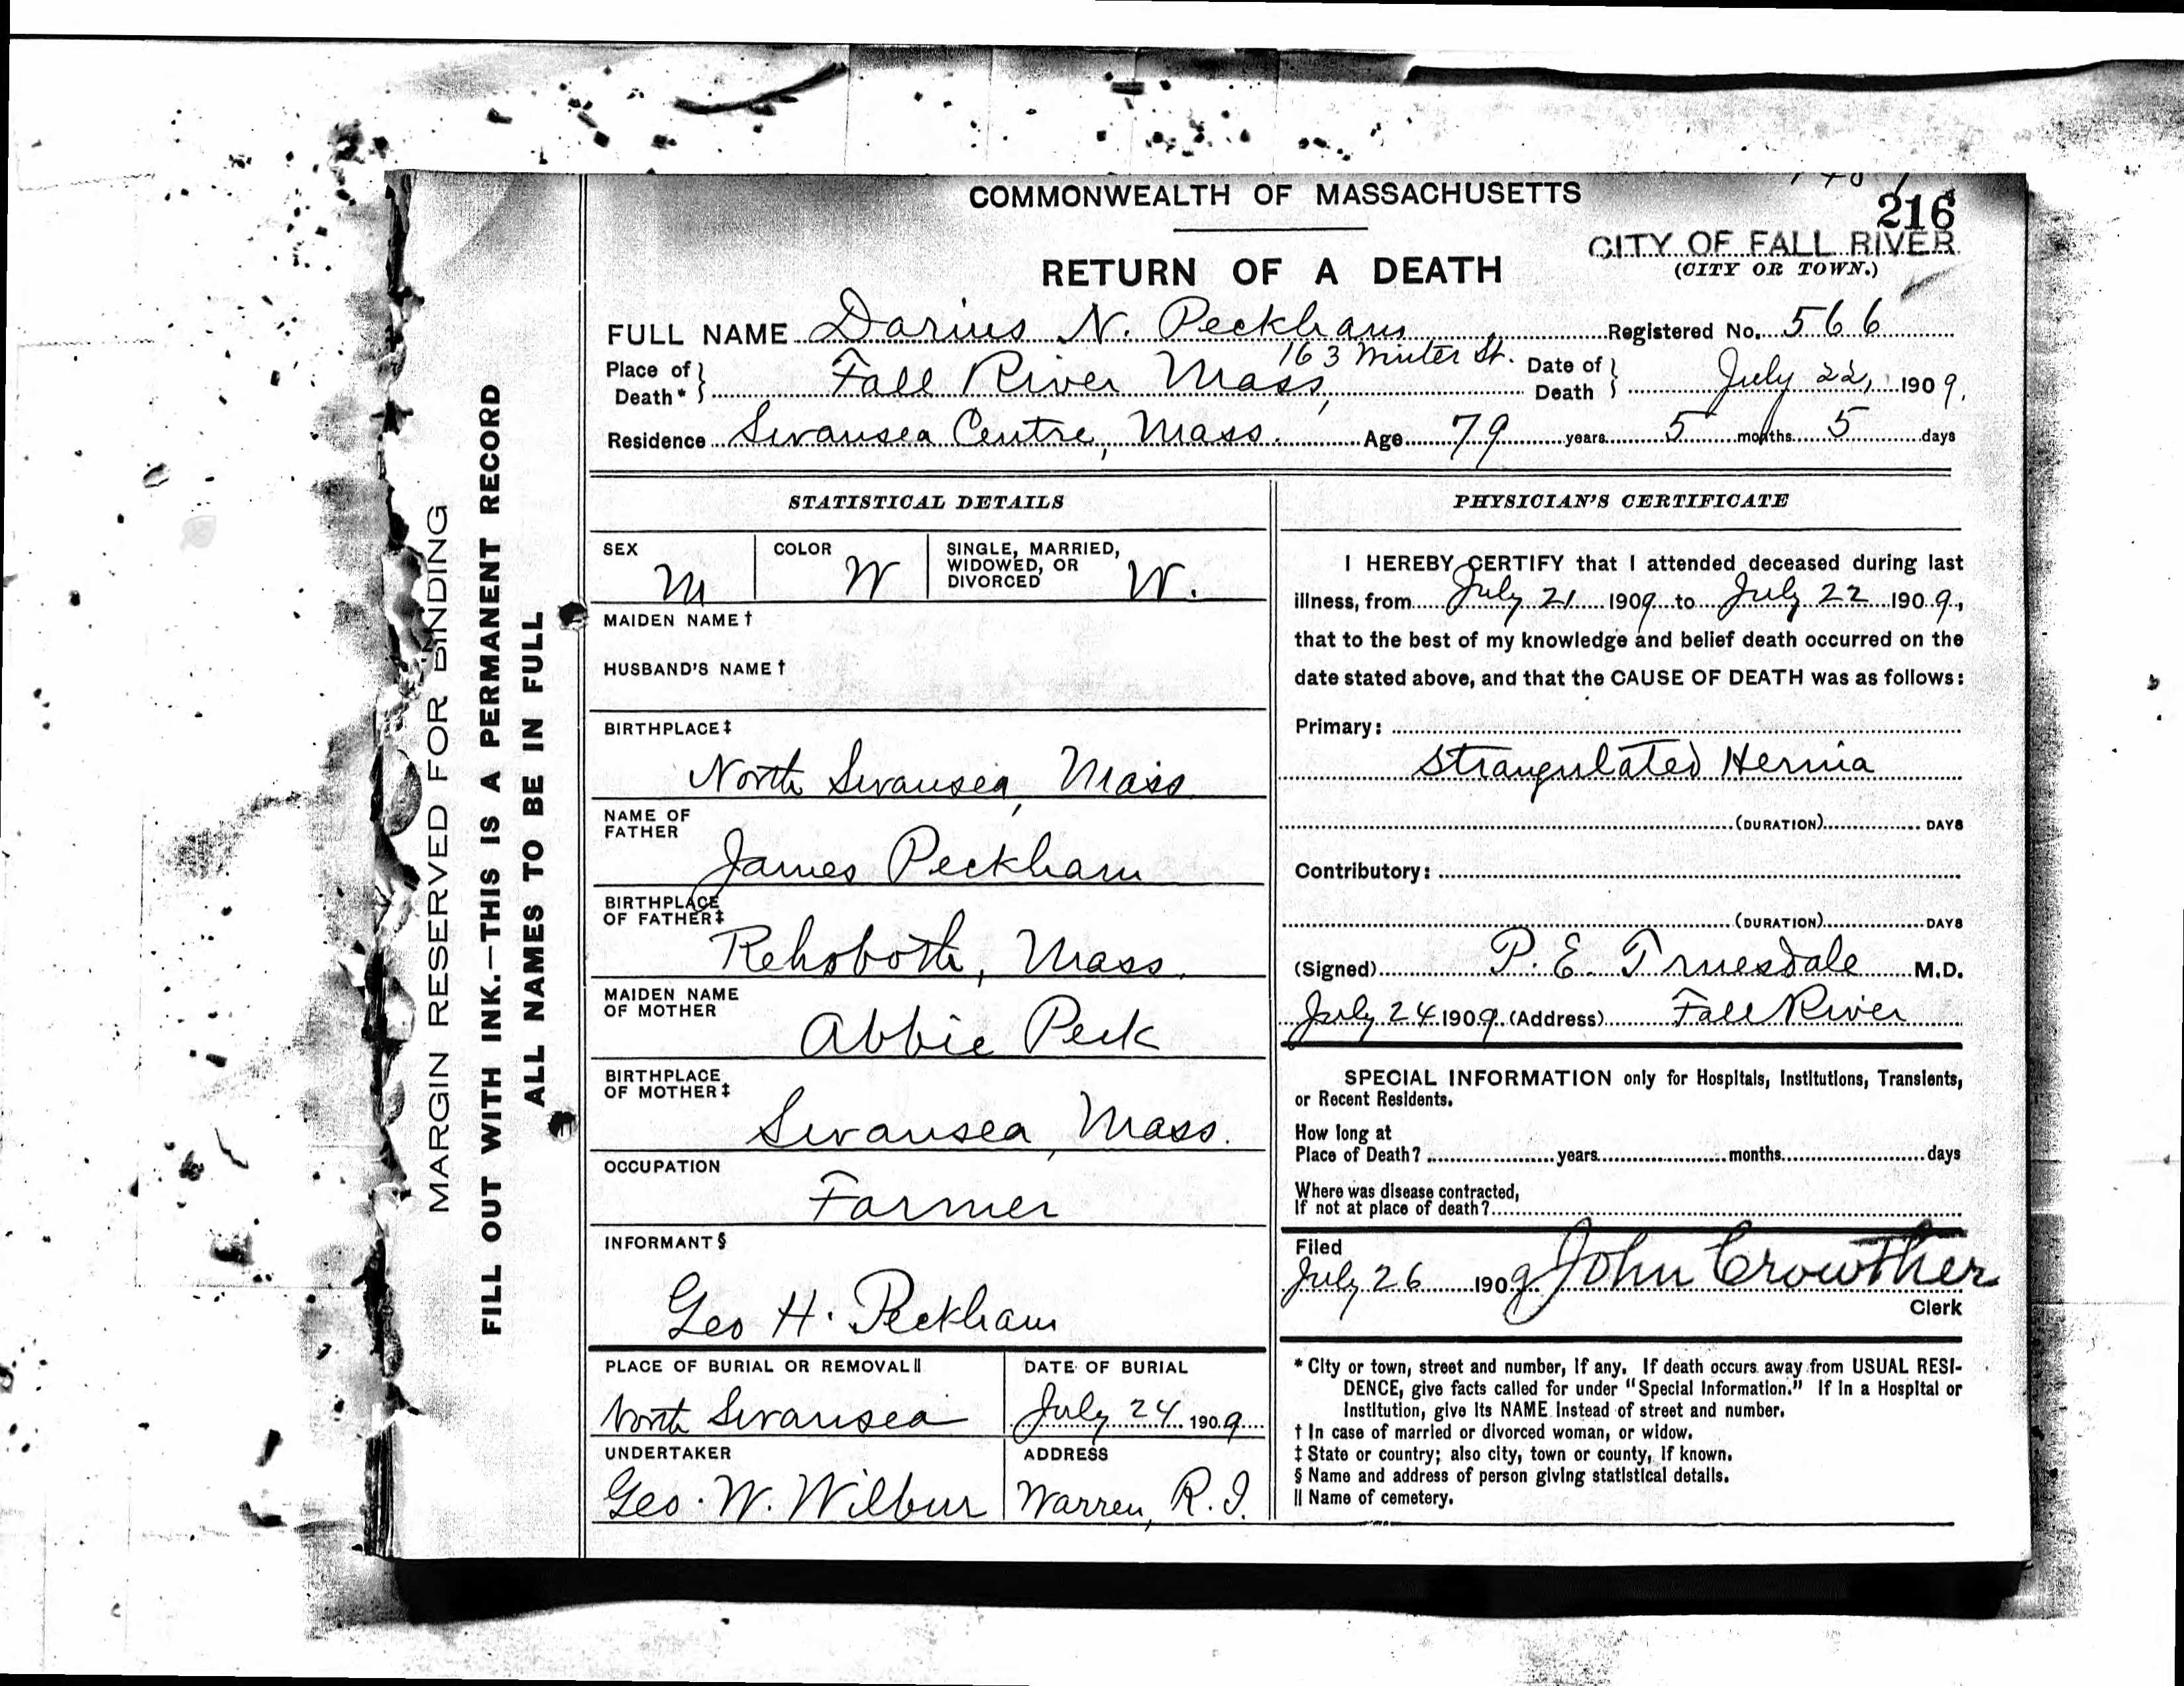 COMMONWEALTH OF MASSACHUSETTS
216
CITY OF FALL RIVER
(CITY OR TOWN.)
RETURN OF A DEATH
FULL NAME Darius N. Peckham Registered No. 566
163 Winter St.
Place of Death* } Fall River Mass, Date of Death } July 22, 1909.
Residence Swansea Centre, Mass. Age 79 years 5 months 5 days
MARGIN RESERVED FOR BINDING
FILL OUT WITH INK.—THIS IS A PERMANENT RECORD
ALL NAMES TO BE IN FULL
STATISTICAL DETAILS
SEX M
COLOR W
SINGLE, MARRIED, WIDOWED, OR DIVORCED W.
MAIDEN NAME †
HUSBAND'S NAME †
BIRTHPLACE ‡
North Swansea, Mass
NAME OF FATHER
James Peckham
BIRTHPLACE OF FATHER ‡
Rehoboth, Mass.
MAIDEN NAME OF MOTHER
Abbie Peck
BIRTHPLACE OF MOTHER ‡
Swansea, Mass.
OCCUPATION
Farmer
INFORMANT §
Geo H. Peckham
PLACE OF BURIAL OR REMOVAL ||
North Swansea
DATE OF BURIAL
July 24 1909
UNDERTAKER
Geo. W. Wilbur
ADDRESS
Warren, R.I.
PHYSICIAN'S CERTIFICATE
I HEREBY CERTIFY that I attended deceased during last
illness, from July 21 1909 to July 22 1909,
that to the best of my knowledge and belief death occurred on the
date stated above, and that the CAUSE OF DEATH was as follows:
Primary:
Strangulated Hernia
(DURATION) DAYS
Contributory:
(DURATION) DAYS
(Signed) P. E. Truesdale M.D.
July 24 1909. (Address) Fall River
SPECIAL INFORMATION only for Hospitals, Institutions, Transients,
or Recent Residents.
How long at
Place of Death? years months days
Where was disease contracted,
If not at place of death?
Filed
July 26 1909 John Crowther
Clerk
* City or town, street and number, if any. If death occurs away from USUAL RESI-
DENCE, give facts called for under "Special Information." If in a Hospital or
Institution, give its NAME instead of street and number.
† In case of married or divorced woman, or widow.
‡ State or country; also city, town or county, if known.
§ Name and address of person giving statistical details.
|| Name of cemetery.